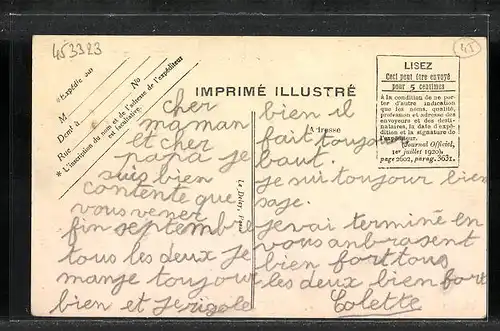 453323
45
*Expédié par
M.
Demt à
Rue
No
* L'inscription du nom et de l'adresse de l'expéditeur
est facultative.
IMPRIMÉ ILLUSTRÉ
Adresse
LISEZ
Ceci peut être envoyé
pour 5 centimes
à la condition de ne por-
ter d'autre indication
que les noms, qualité,
profession et adresse des
envoyeurs et des desti-
nataires, la date d'expé-
dition et la signature de
l'expéditeur.
(Journal Officiel,
1er juillet 1920).
page 2602, parag. 3631.
cher
maman
et cher
papa je
suis bien
contente que
vous vener
fin septembre
tous les deux je
mange toujour
bien et je rigole
bien il
fait toujour
baut.
je suit toujour bien
sage.
jevai terminé en
vous anbrasent
bien fort tous
les deux bien fort
Colette